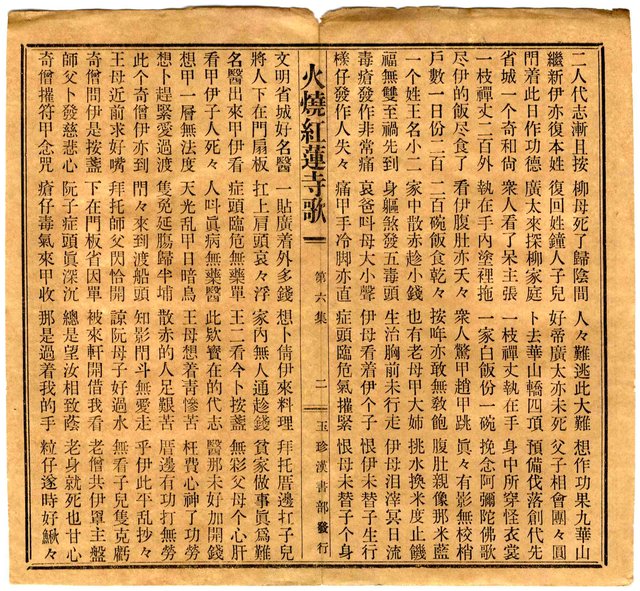 二人代志漸且按 柳母死了歸陰間 人々難逃此大難 想作功果九華山
繼新伊亦復本姓 復回姓鐘人子兒 好帝廣太亦未死 父子相會團々圓
門着此日作功德 廣太來探柳家庭 卜去華山轎四頂 預備伐落創代先
省城一个奇和尚 衆人看了呆主張 一枝禪丈執在手 身中所穿怪衣裳
一枝禪丈二百外 執在手內塗裡拖 一家白飯份一碗 挽念阿彌陀佛歌
尽伊的飯尽食了 看伊腹肚亦夭々 衆人驚甲趙甲跳 眞々有影無校梢
戶數一日份二百 二百碗飯食乾々 按咋亦敢無敎飽 腹肚親像那米藍
一个姓王名小二 家中散赤趁小錢 也有老母甲大姉 挑水換米度止饑
福無雙至禍先到 身軀煞發五毒頭 生治胸前未行走 伊母泪滓冥日流
毒瘡發作非常痛 哀爸叫母大小聲 伊母看着伊个子 恨伊未替子生行
樣仔發作人失々 痛甲手冷脚亦直 症頭臨危氣摧緊 恨母未替子个身
火燒紅蓮寺歌 第六集 二 玉珍漢書部發行
文明省城好名醫 一貼廣着外多錢 想卜倩伊來料理 拜托厝邊扛子兒
將人下在門扇板 扛上肩頭哀々浮 家內無人通趁錢 貧家做事眞爲難
名醫出來甲伊看 症頭臨危無藥單 王二看今卜按盞 無彩父母个心肝
看甲伊子人死々 人叫眞病無藥醫 此欺實在的代志 醫那未好加開錢
想甲一層無法度 天光乱甲日暗烏 王母想着靑慘苦 枉費心神了功勞
想卜趕緊愛過渡 隻免延膓歸半埔 散赤的人足艱苦 厝邊有功打無勞
此个奇僧伊亦到 門々來到渡船頭 知影門斗無愛走 乎伊此平乱抄々
王母近前求好嘴 拜托師父閃恰開 諒阮母子好過水 無看子兒隻克虧
奇僧問伊是按盞 下在門板省因單 被來軒開借我看 老僧共伊罩主盤
師父卜發慈悲心 阮子症頭眞深沉 總是望汝相致蔭 老身就死也甘心
奇僧摧符甲念咒 瘡仔毒氣來甲收 那是過着我的手 粒仔遂時好鰍々